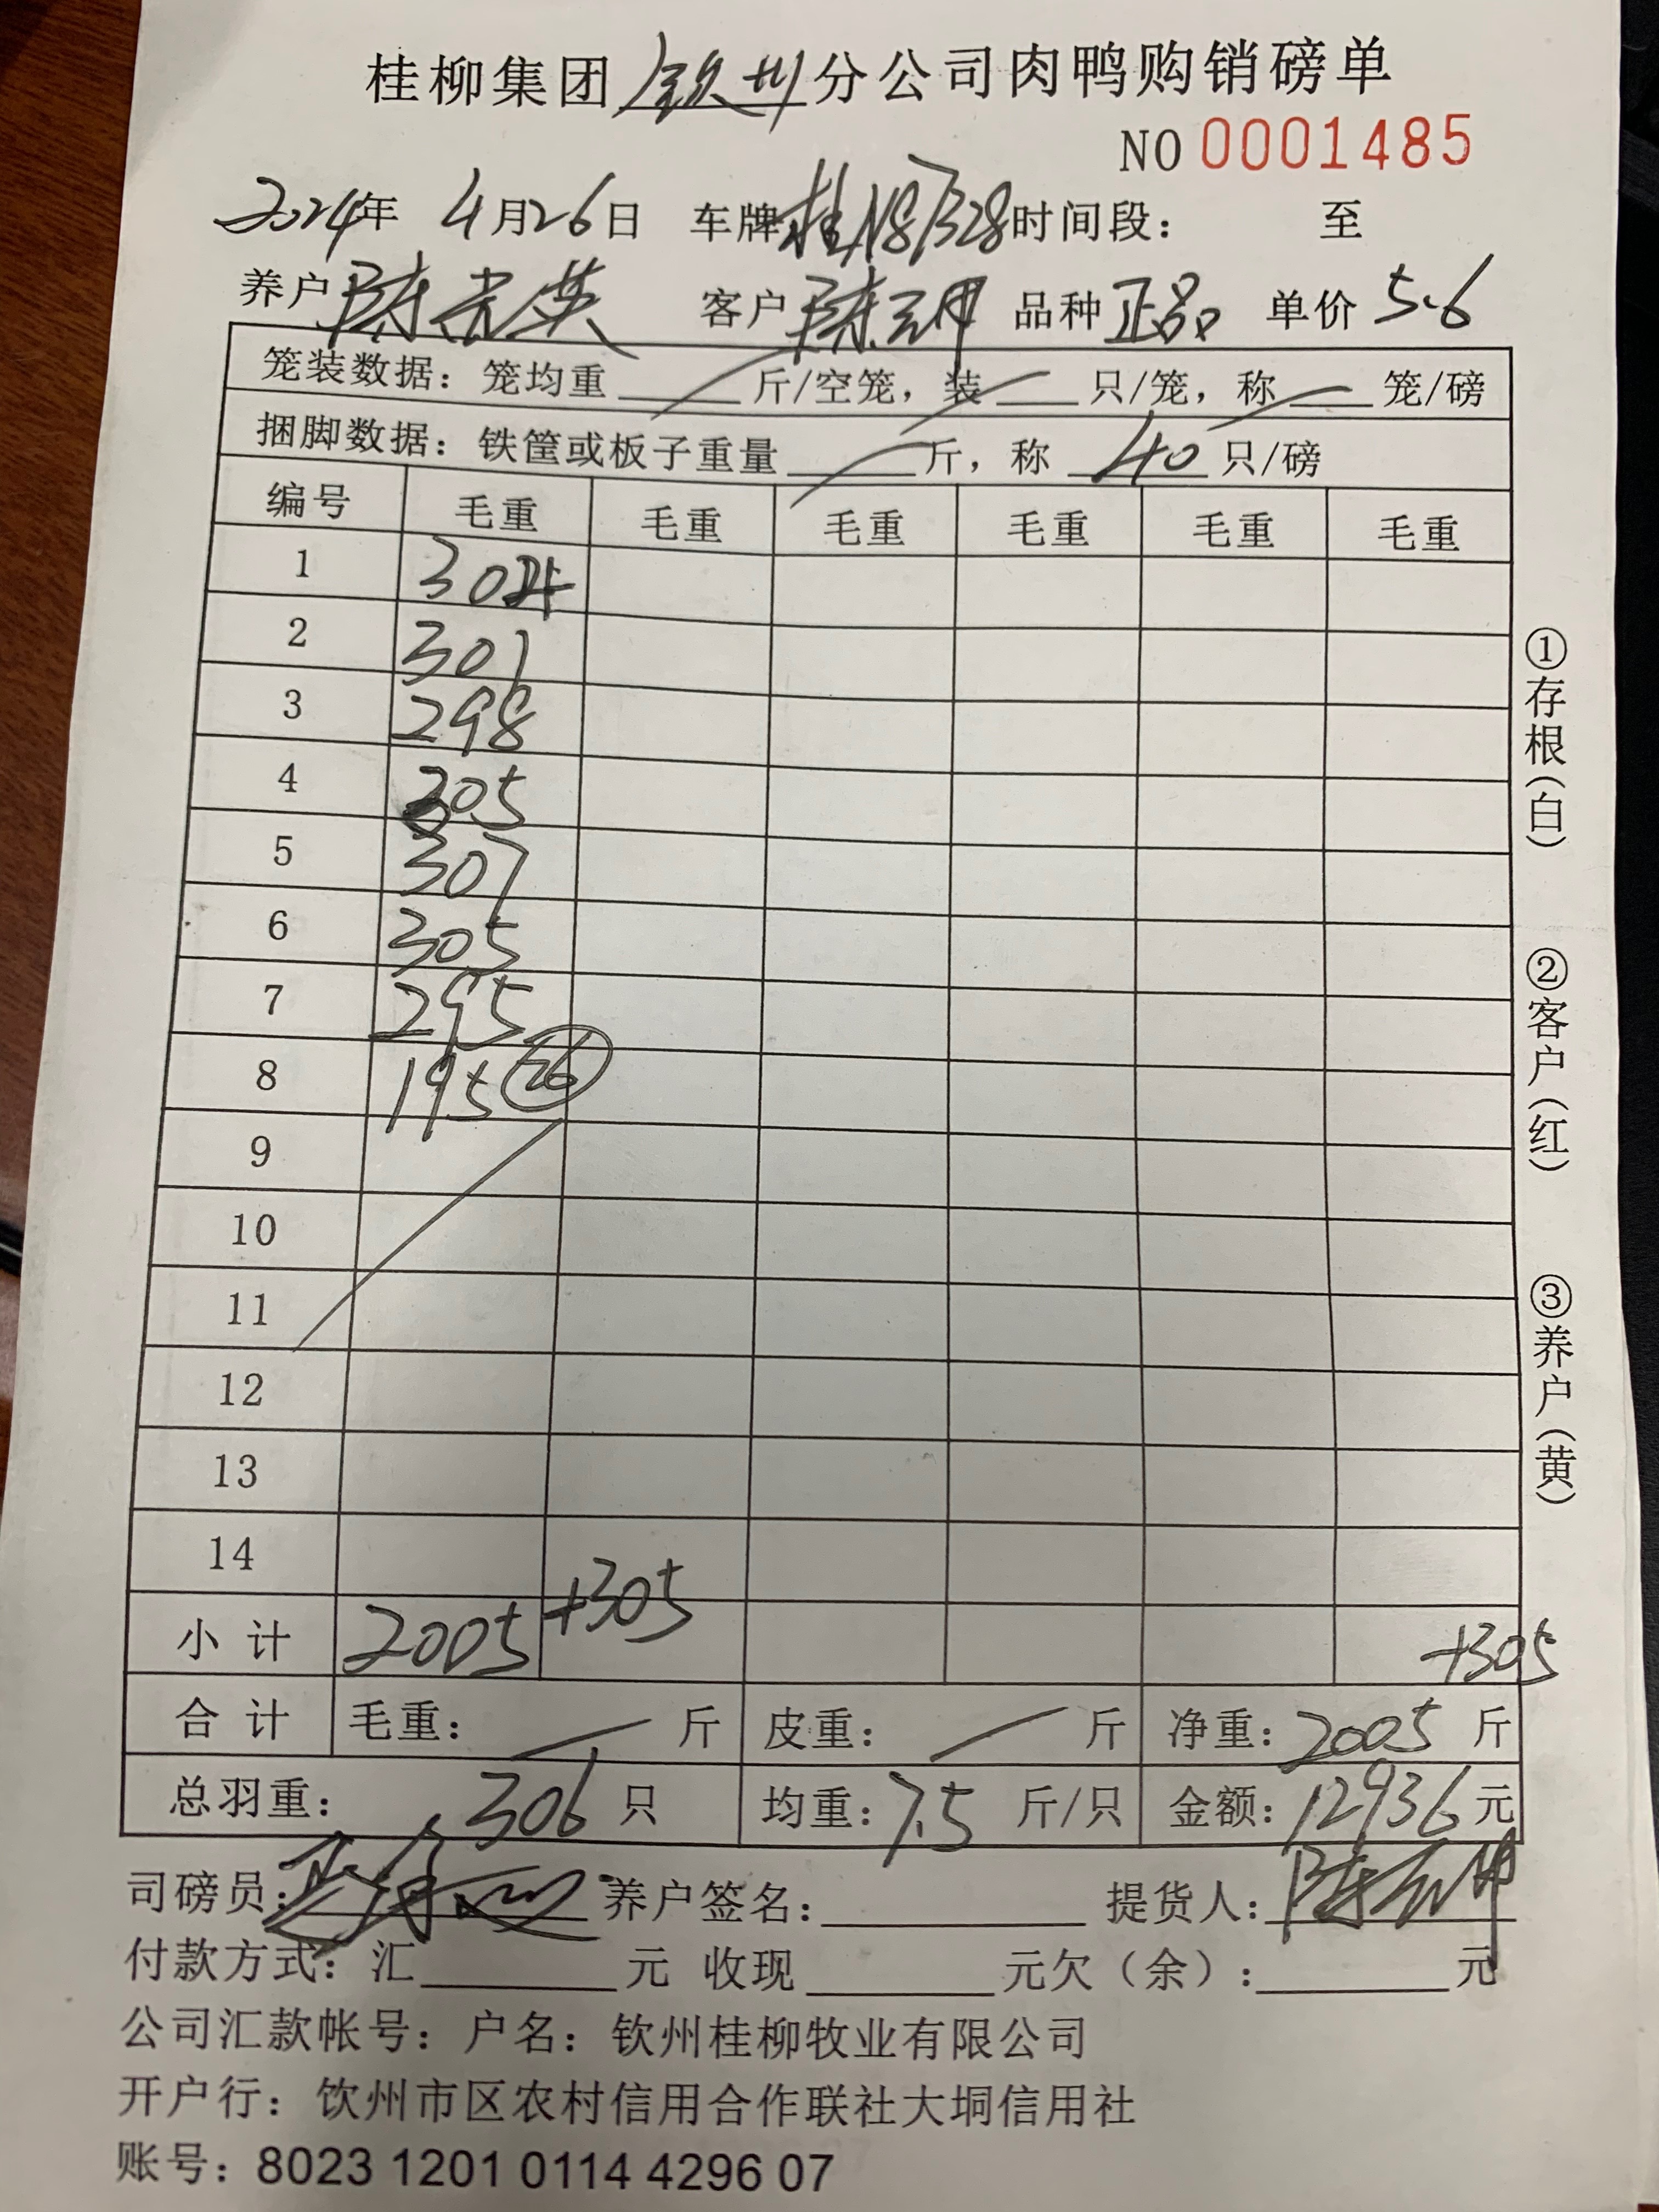 桂柳集团钦州分公司肉鸭购销磅单
NO 0001485
2024年 4月26日 车牌桂N8B328时间段： 至
养户陈 英 客户陈 品种正品 单价5.6
笼装数据：笼均重 斤/空笼，装 只/笼，称 笼/磅
捆脚数据：铁筐或板子重量 斤，称 40 只/磅
编号 毛重 毛重 毛重 毛重 毛重 毛重
1 304
2 301
3 298
4 305
5 307
6 305
7 295
8 195 26
9
10
11
12
13
14
小计 2005 +305 +305
合计 毛重： 斤 皮重： 斤 净重：2005 斤
总羽重： 306 只 均重：7.5 斤/只 金额：12936元
司磅员： 养户签名： 提货人：陈
付款方式：汇 元 收现 元欠（余）： 元
公司汇款帐号：户名：钦州桂柳牧业有限公司
开户行：饮州市区农村信用合作联社大垌信用社
账号：8023 1201 0114 4296 07
①存根（白）
②客户（红）
③养户（黄）